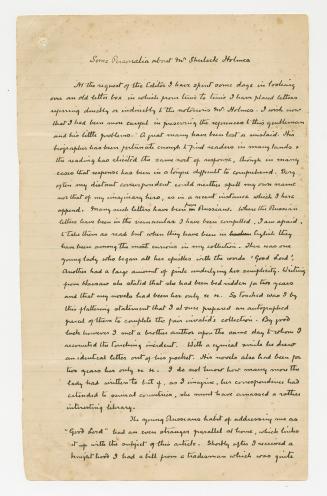 Some Personalia about Mr Sherlock Holmes
At the request of the Editor I have spent some days in looking
over an old letter box in which from time to time I have placed letters
referring directly or indirectly to the notorious Mr Holmes. I wish now
that I had been more careful in preserving the references to this gentleman
and his little problems. A great many have been lost or mislaid. His
biographer has been fortunate enough to find readers in many lands &
the reading has elicited the same sort of response, though in many
cases that response has been in a tongue difficult to comprehend. Very
often my distant correspondent could neither spell my own name
nor that of my imaginary hero, as in a recent instance which I here
append. Many such letters have been from Russians. Where the Russian
letters have been in the vernacular I have been compelled, I am afraid,
to take them as read but when they have been in English they
have been among the most curious in my collection. There was one
young lady who began all her epistles with the words "Good Lord".
Another had a large amount of guile underlying her simplicity. Writing
from Warsaw she stated that she had been bedridden for two years
and that my novels had been her only &c &c. So touched was I by
this flattering statement that I at once prepared an autographed
parcel of them to complete the fair invalid's collection. By good
luck however I met a brother author upon the same day to whom I
recounted the touching incident. With a cynical smile he drew
an identical letter out of his pocket. His novels also had been for
two years her only &c &c. I do not know how many more the
lady had written to but if, as I imagine, her correspondence had
extended to several countries, she must have amassed a rather
interesting library.
The young Russian's habit of addressing me as
"Good Lord" had an even stranger parallel at home, which links
it up with the subject of this article. Shortly after I received a
knighthood I had a bill from a tradesman which was quite